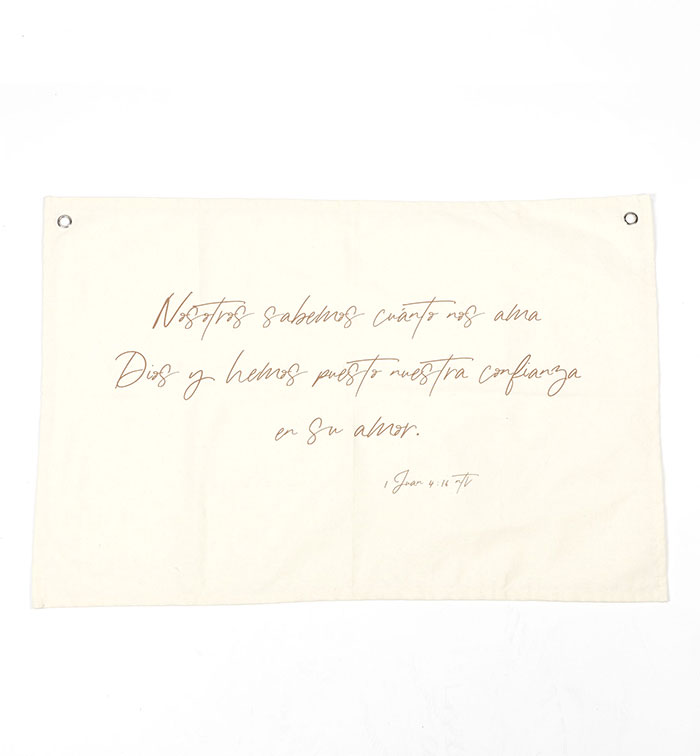 Nosotros sabemos cuánto nos ama
Dios y hemos puesto nuestra confianza
en su amor.
1 Juan 4:16 ntv